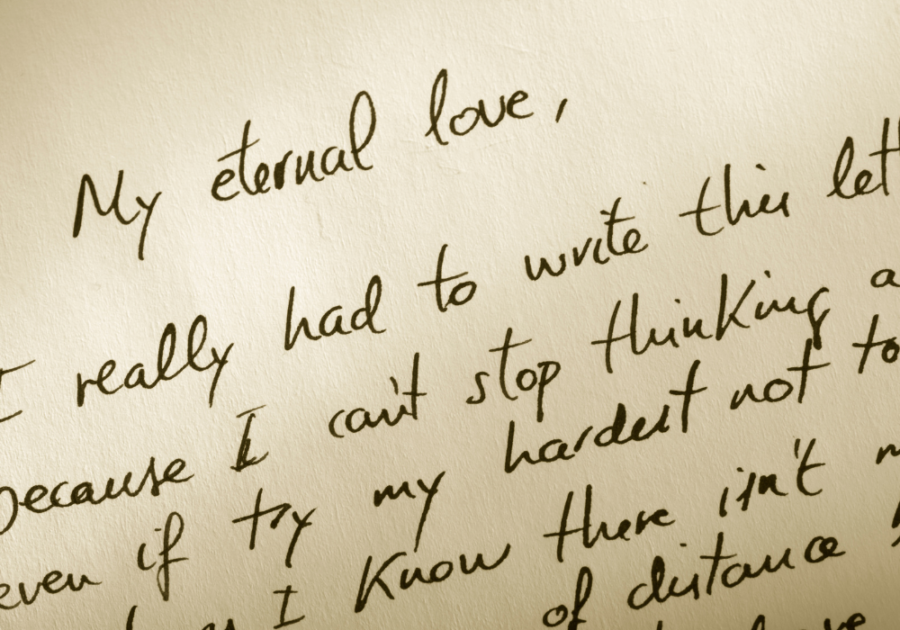 My eternal love,
I really had to write this let
because I can't stop thinking a
even if try my hardest not to
I know there isn't m
of distance